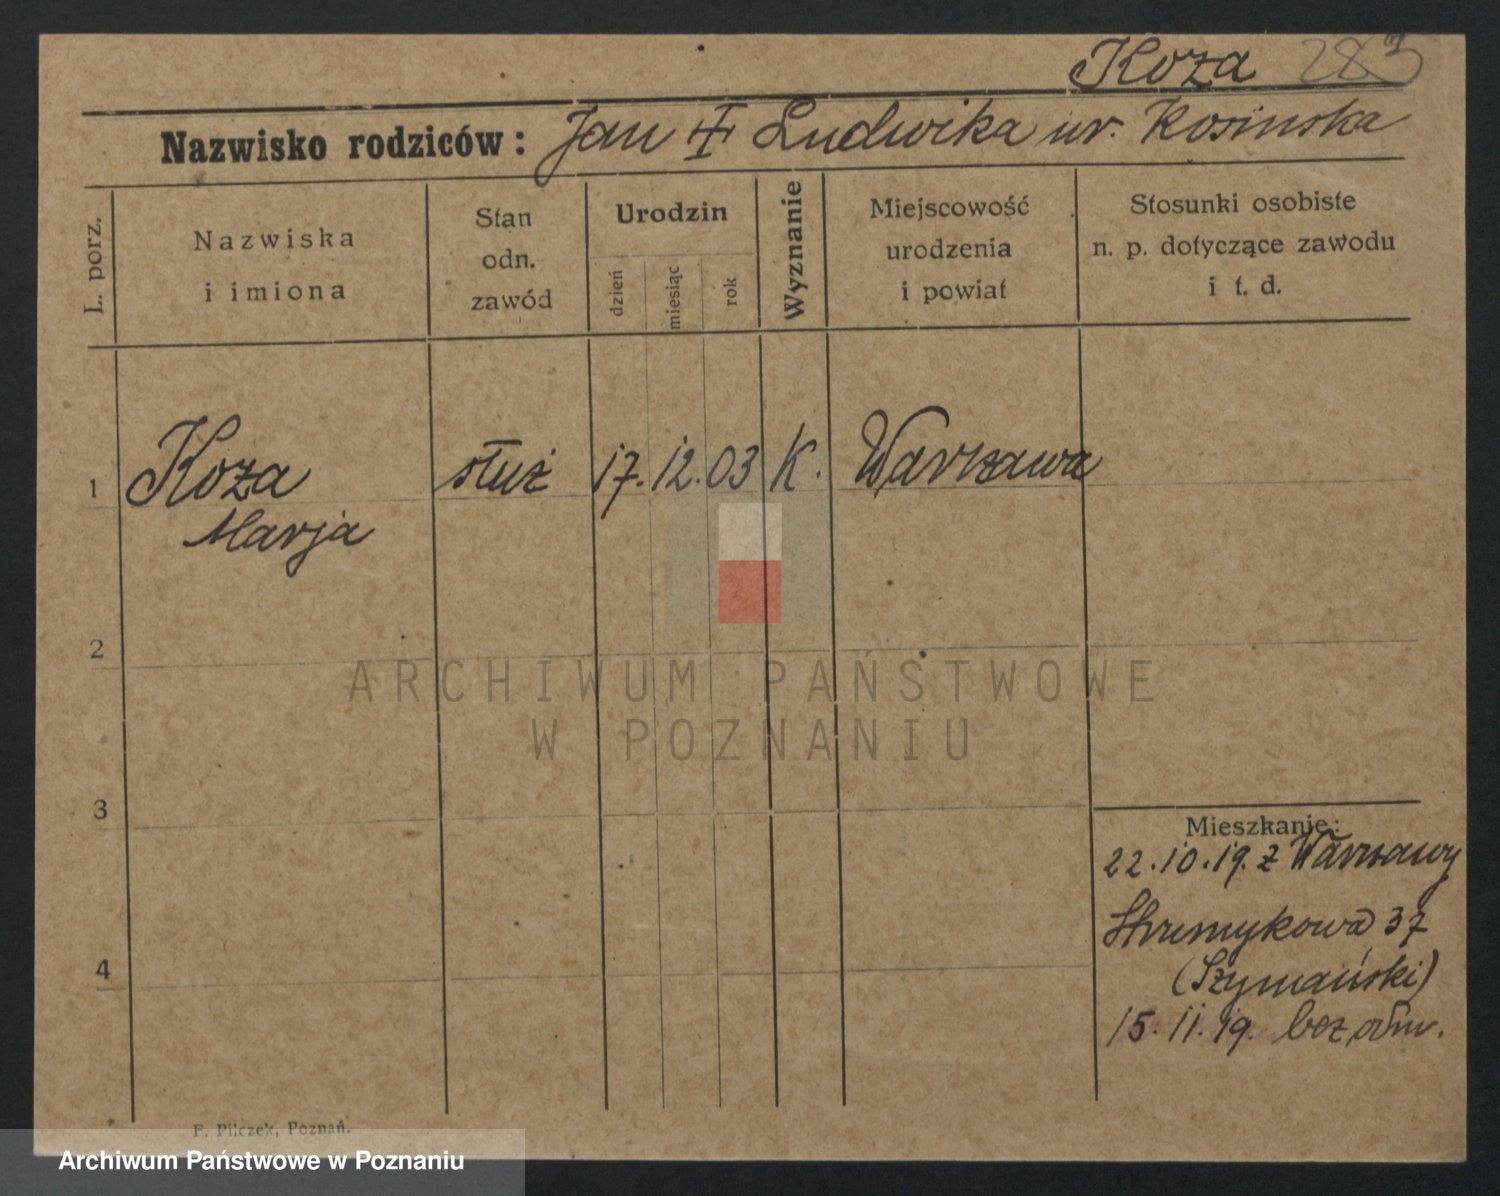 Koza 283
Nazwisko rodziców: Jan ‡ Ludwika ur. Kosinska
L. porz.
Nazwiska
i imiona
Stan
odn.
zawód
Urodzin
dzień
miesiąc
rok
Wyznanie
Miejscowość
urodzenia
i powiat
Stosunki osobiste
n. p. dotyczące zawodu
i t. d.
1 Koza służ 17. 12. 03 K. Warszawa
Marja
2
3
4
Mieszkanie:
22.10.19. z Warszawy
Strumykowa 37
(Szymański)
15. 11. 19. bez odm.
F. Pilczek, Poznań.
ARCHIWUM PAŃSTWOWE
W POZNANIU
Archiwum Państwowe w Poznaniu